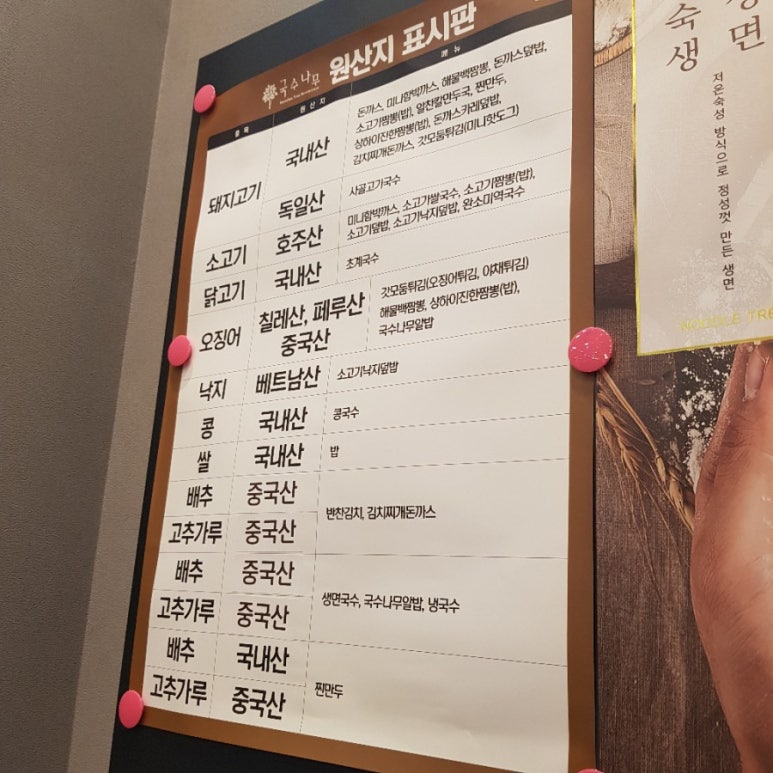 국수나무 원산지 표시판
품목 원산지 메뉴
돼지고기 국내산 돈까스, 미니함박까스, 해물백짬뽕, 돈까스덮밥,
소고기짬뽕(밥), 알찬칼만두국, 찐만두,
상하이진한짬뽕(밥), 돈까스카레덮밥,
김치찌개돈까스, 갓모둠튀김(미니핫도그)
독일산 사골고기국수
소고기 호주산 미니함박까스, 소고기쌀국수, 소고기짬뽕(밥),
소고기덮밥, 소고기낙지덮밥, 완소미역국수
닭고기 국내산 초계국수
오징어 칠레산, 페루산 갓모둠튀김(오징어튀김, 야채튀김)
중국산 해물백짬뽕, 상하이진한짬뽕(밥),
국수나무알밥
낙지 베트남산 소고기낙지덮밥
콩 국내산 콩국수
쌀 국내산 밥
배추 중국산 반찬김치, 김치찌개돈까스
고추가루 중국산
배추 중국산 생면국수, 국수나무알밥, 냉국수
고추가루 중국산
배추 국내산 찐만두
고추가루 중국산
숙생
면
저온숙성 방식으로 정성껏 만든 생면
NOODLE TRE